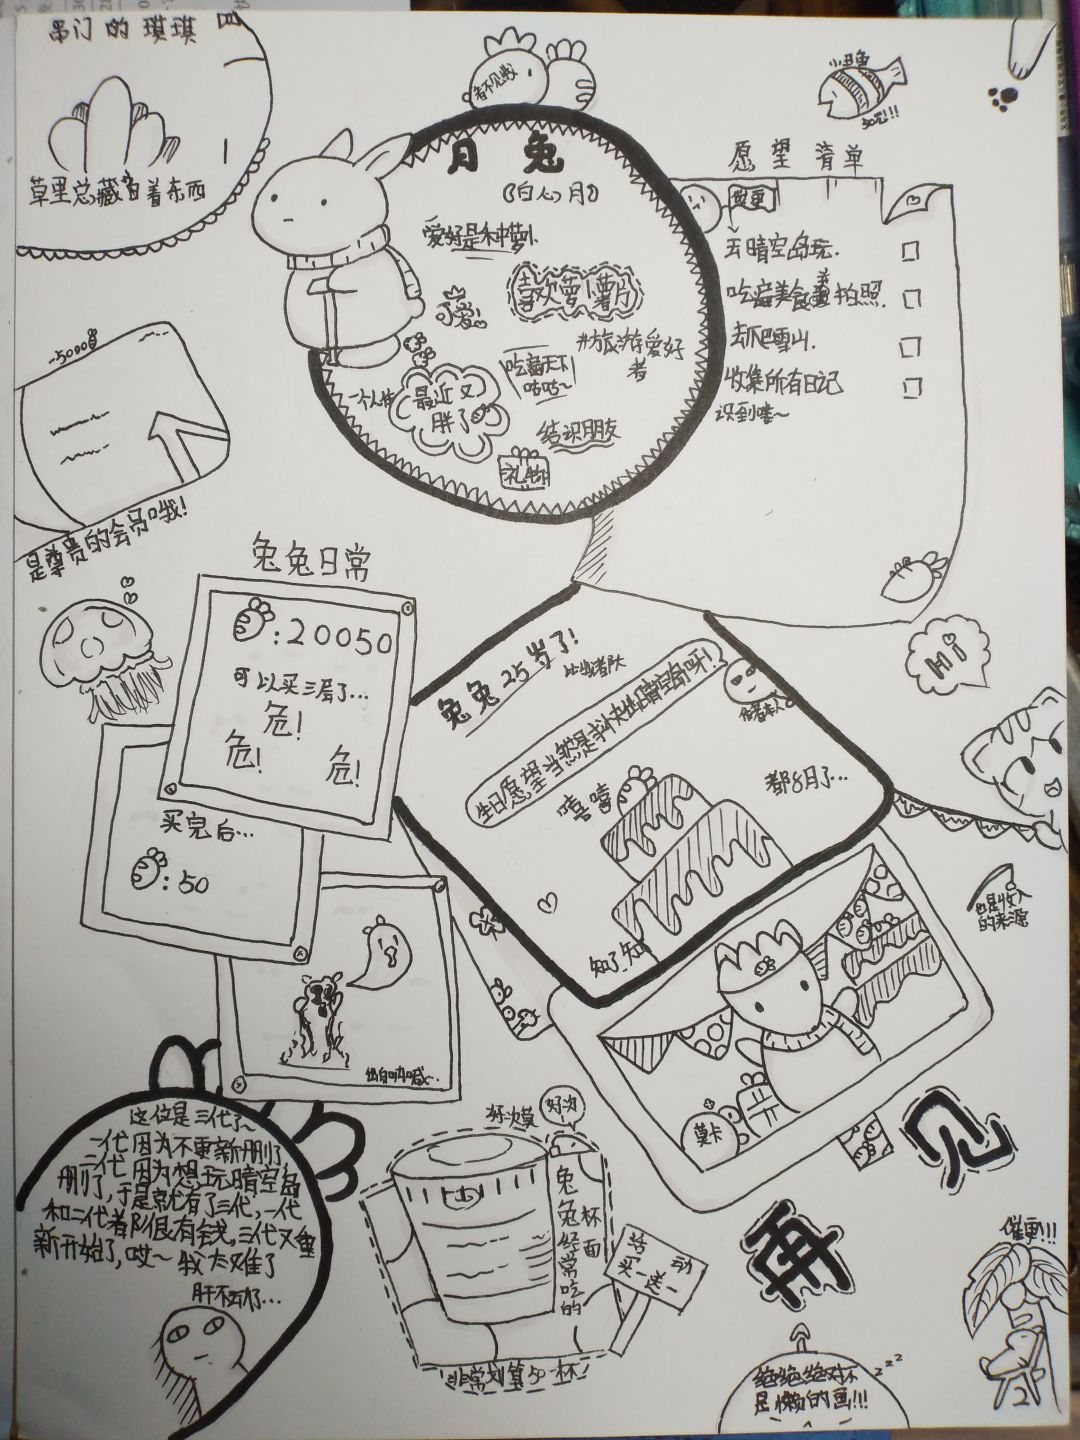 串门的琪琪
草里总藏着东西
看不见我
月兔
(白心月)
爱好是种萝卜
喜欢萝卜薯片
可爱!
#旅游爱好者
吃薯天不咕咕~
一个人住
最近又胖了
结识朋友
礼物
小丑鱼
50元!!!
愿望清单
去晴空岛玩.
吃遍美食并拍照.
去爬雪山.
收集所有日记
识到喽~
-5000
是尊贵的会员哦!
兔兔日常
:20050
可以买三层了...
危!
危!
危!
买完后...
:50
兔兔25岁了!
生日愿望当然是我快出晴空岛呀!
作者本人
嘻嘻
都8月了...
知了_知
Hi
也是收入的来源
莫卡
这位是三代了~
一代因为不重新删了,
二代因为想玩晴空岛
删了,于是就有了三代,一代
和二代都很有钱,三代又重
新开始了,哎~我太难了
肝不动了...
好次
兔兔经常吃的
杯面
活动
买一送一
非常划算50一杯!
再见
催更!!!
绝绝绝对不
是懒的画!!!
zzz